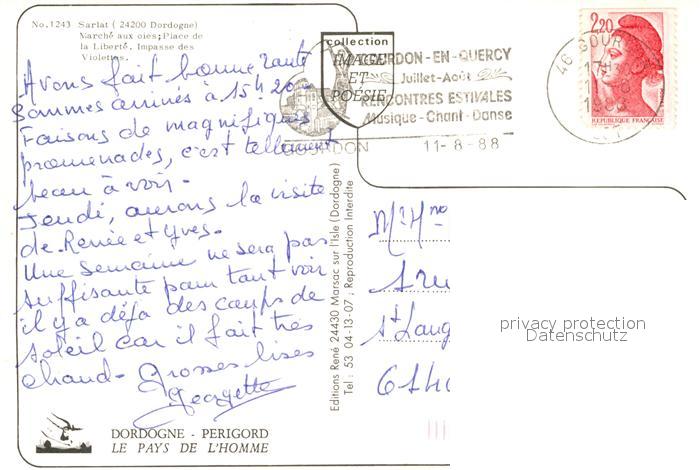 No. 1243 Sarlat ( 24200 Dordogne)
Marché aux oies; Place de
la Liberté, Impasse des
Violettes.
Avons fait bonne route
sommes arrivés à 15h20
Faisons de magnifiques
promenades, c'est tellement
beau à voir.
Jeudi, aurons la visite
de Renée et Yves.
Une semaine ne sera pas
suffisante pour tout voir
il y a déjà des coups de
soleil car il fait très
chaud - Grosses bises
Georgette
collection
IMAGE
ET
POÉSIE
GOURDON-EN-QUERCY
Juillet-Août
RENCONTRES ESTIVALES
Musique-Chant-Danse
GOURDON
11-8-88
46 GOUR
17H
198
LOT
2,20
REPUBLIQUE FRANÇAISE
Editions René 24430 Marsac sur l'Isle (Dordogne)
Tel : 53 04-13-07 ; Reproduction Interdite
Mr Mme
St Lang
privacy protection
Datenschutz
DORDOGNE - PERIGORD
LE PAYS DE L'HOMME